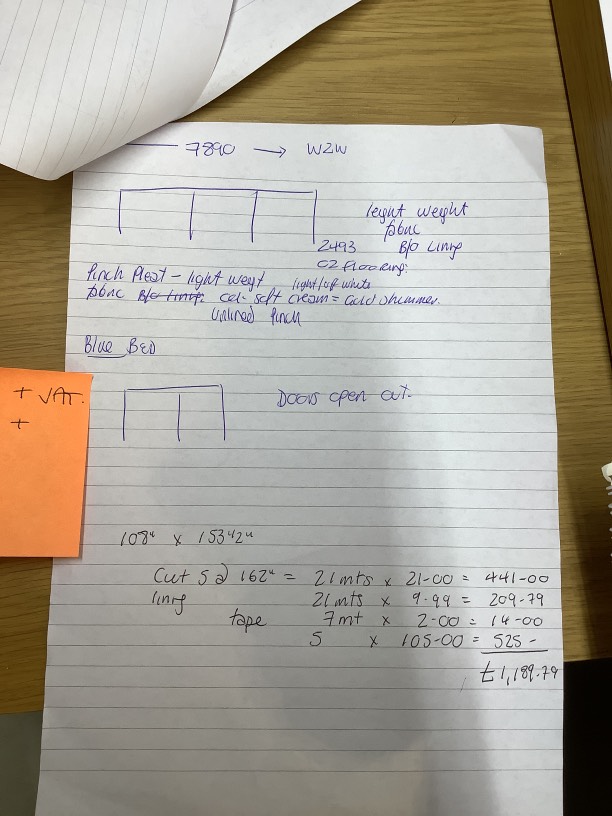 7890 → W2W
light weight
fabric
2493 B/O Lining
02 Flooring.
Pinch Pleat - light weight light/off white
fabric B/o lining. col- soft cream = Gold shimmer.
Unlined Pinch
Blue BED
Doors open out.
+ VAT.
+
108" x 153 1/2"
Cut 5 @ 162" = 21mts x 21-00 = 441-00
lining 21mts x 9.99 = 209.79
tape 7mt x 2-00 = 14-00
5 x 105-00 = 525 -
£1,189.79